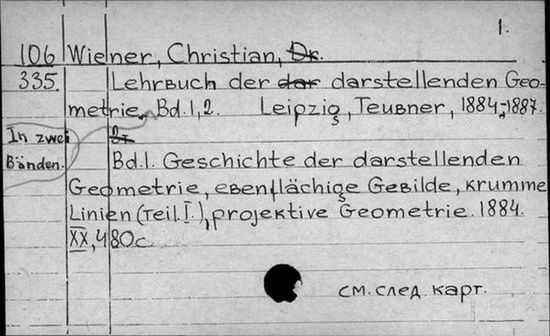 1.
106 Wiener, Christian, Dr.
335. Lehrbuch der dar darstellenden Geo-
metrie. Bd. 1, 2. Leipzig, Teubner, 1884-1887.
In zwei
Bänden.
Bd. 1. Geschichte der darstellenden
Geometrie, ebenflächige Gebilde, krumme
Linien (Teil I.), projektive Geometrie. 1884.
XX, 480 c.
см. след. карт.